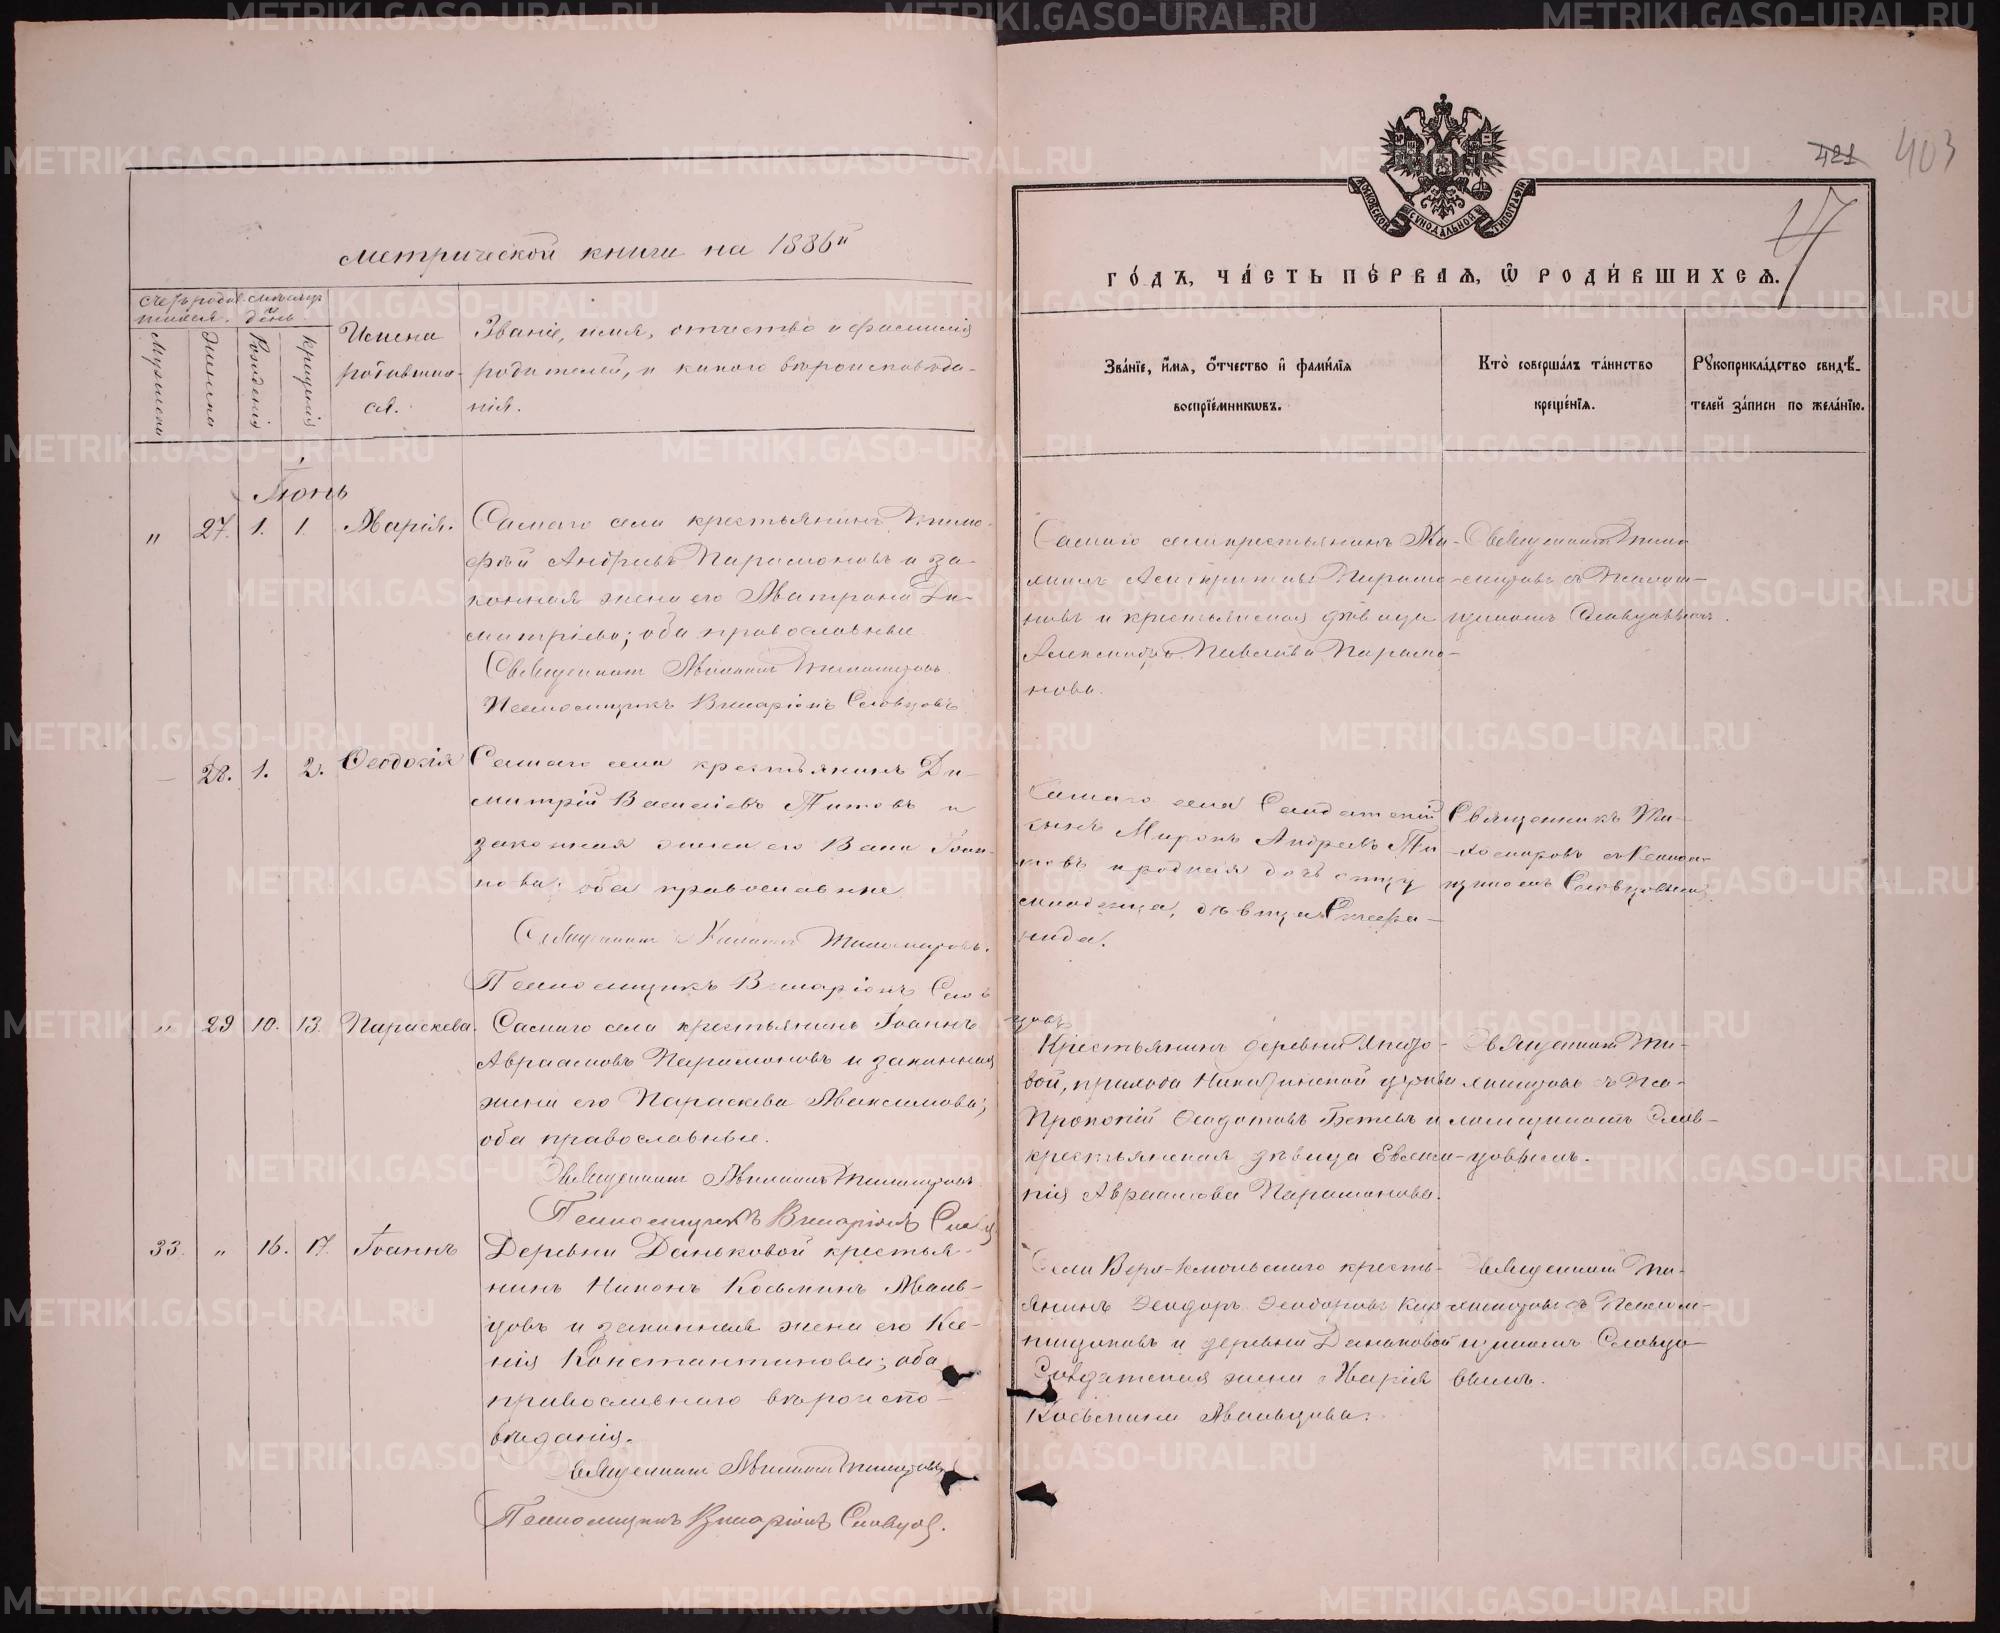 метрической книги на 1886й
Счетъ родив-
шихся.
Мѣсяцъ
день
Мужеска
Женска
Рожденія
крещенія
Имена
родивших-
ся.
Званіе, имя, отчество и фамилія
родителей, и какого вѣроисповѣда-
нія.
Іюнь
" 27. 1. 1. Марія. Самаго села крестьянинъ Тимо-
фѣй Андреевъ Парамоновъ и за-
конная жена его Матрона Ди-
митріева; оба православные.
Священникъ Тихомировъ
Псаломщикъ Иларіонъ Словцовъ
28. 1. 2. Ѳеодосія Самаго села крестьянинъ Ди-
митрій Васильевъ Титовъ и
законная жена его Іоан-
нова; оба православные
Священникъ Тихомировъ.
Псаломщикъ Иларіонъ Слов-
цовъ
" 29 10. 13. Параскева. Самаго села крестьянинъ Іоаннъ
Авраамовъ Парамоновъ и законная
жена его Параскева Максимова;
оба православные.
Священникъ Тихомировъ
Псаломщикъ Иларіонъ
33. " 16. 17. Іоаннъ Деревни Даньковой крестья-
нинъ Никонъ Косьминъ Маль-
цовъ и законная жена его Ксе-
нія Константинова; оба
православнаго вѣроиспо-
вѣданія.
Священникъ Тихомировъ
Псаломщикъ Иларіонъ Словцов.
421 403
17
МОСКОВСКОЙ СУНОДАЛЬНОЙ ТИПОГРАФІИ
ГО́ДЪ, ЧА́СТЬ ПЕ́РВАЯ, Ѿ РОДИ́ВШИХСЯ.
Зва́нїе, и́мя, ѻ҆́тчество и҆ фами́лїя
воспрїе́мникѡвъ.
Кто̀ соверша́лъ та́инство
креще́нїя.
Рꙋкоприкла́дство свидѣ́-
телей за́писи по жела́нїю.
Самаго села крестьянинъ
Парамо-
новъ и крестьянская дѣвица
Александра Павлова Парамо-
нова.
Священникъ Тихо-
мировъ съ Псалом-
щикомъ Словцовымъ.
Самаго села Солдатскій
сынъ Миронъ Андреевъ Ти-
товъ и родная дочь отцу
младенца, дѣвица
Священникъ Ти-
хомировъ съ Псалом-
щикомъ Словцовымъ.
Крестьянинъ деревни
вой, прихода церкви
Прокопій Ѳеодотовъ и
крестьянская дѣвица Евге-
нія Авраамова Парамонова.
Священникъ Ти-
хомировъ съ Пса-
ломщикомъ Слов-
цовымъ.
Села крестья-
янинъ Ѳеодоръ Ѳеодоровъ
и деревни Даньковой
Солдатская жена Марія
Косьмина Мальцова.
Священникъ Ти-
хомировъ съ Псалом-
щикомъ Словцо-
вымъ.
METRIKI.GASO-URAL.RU